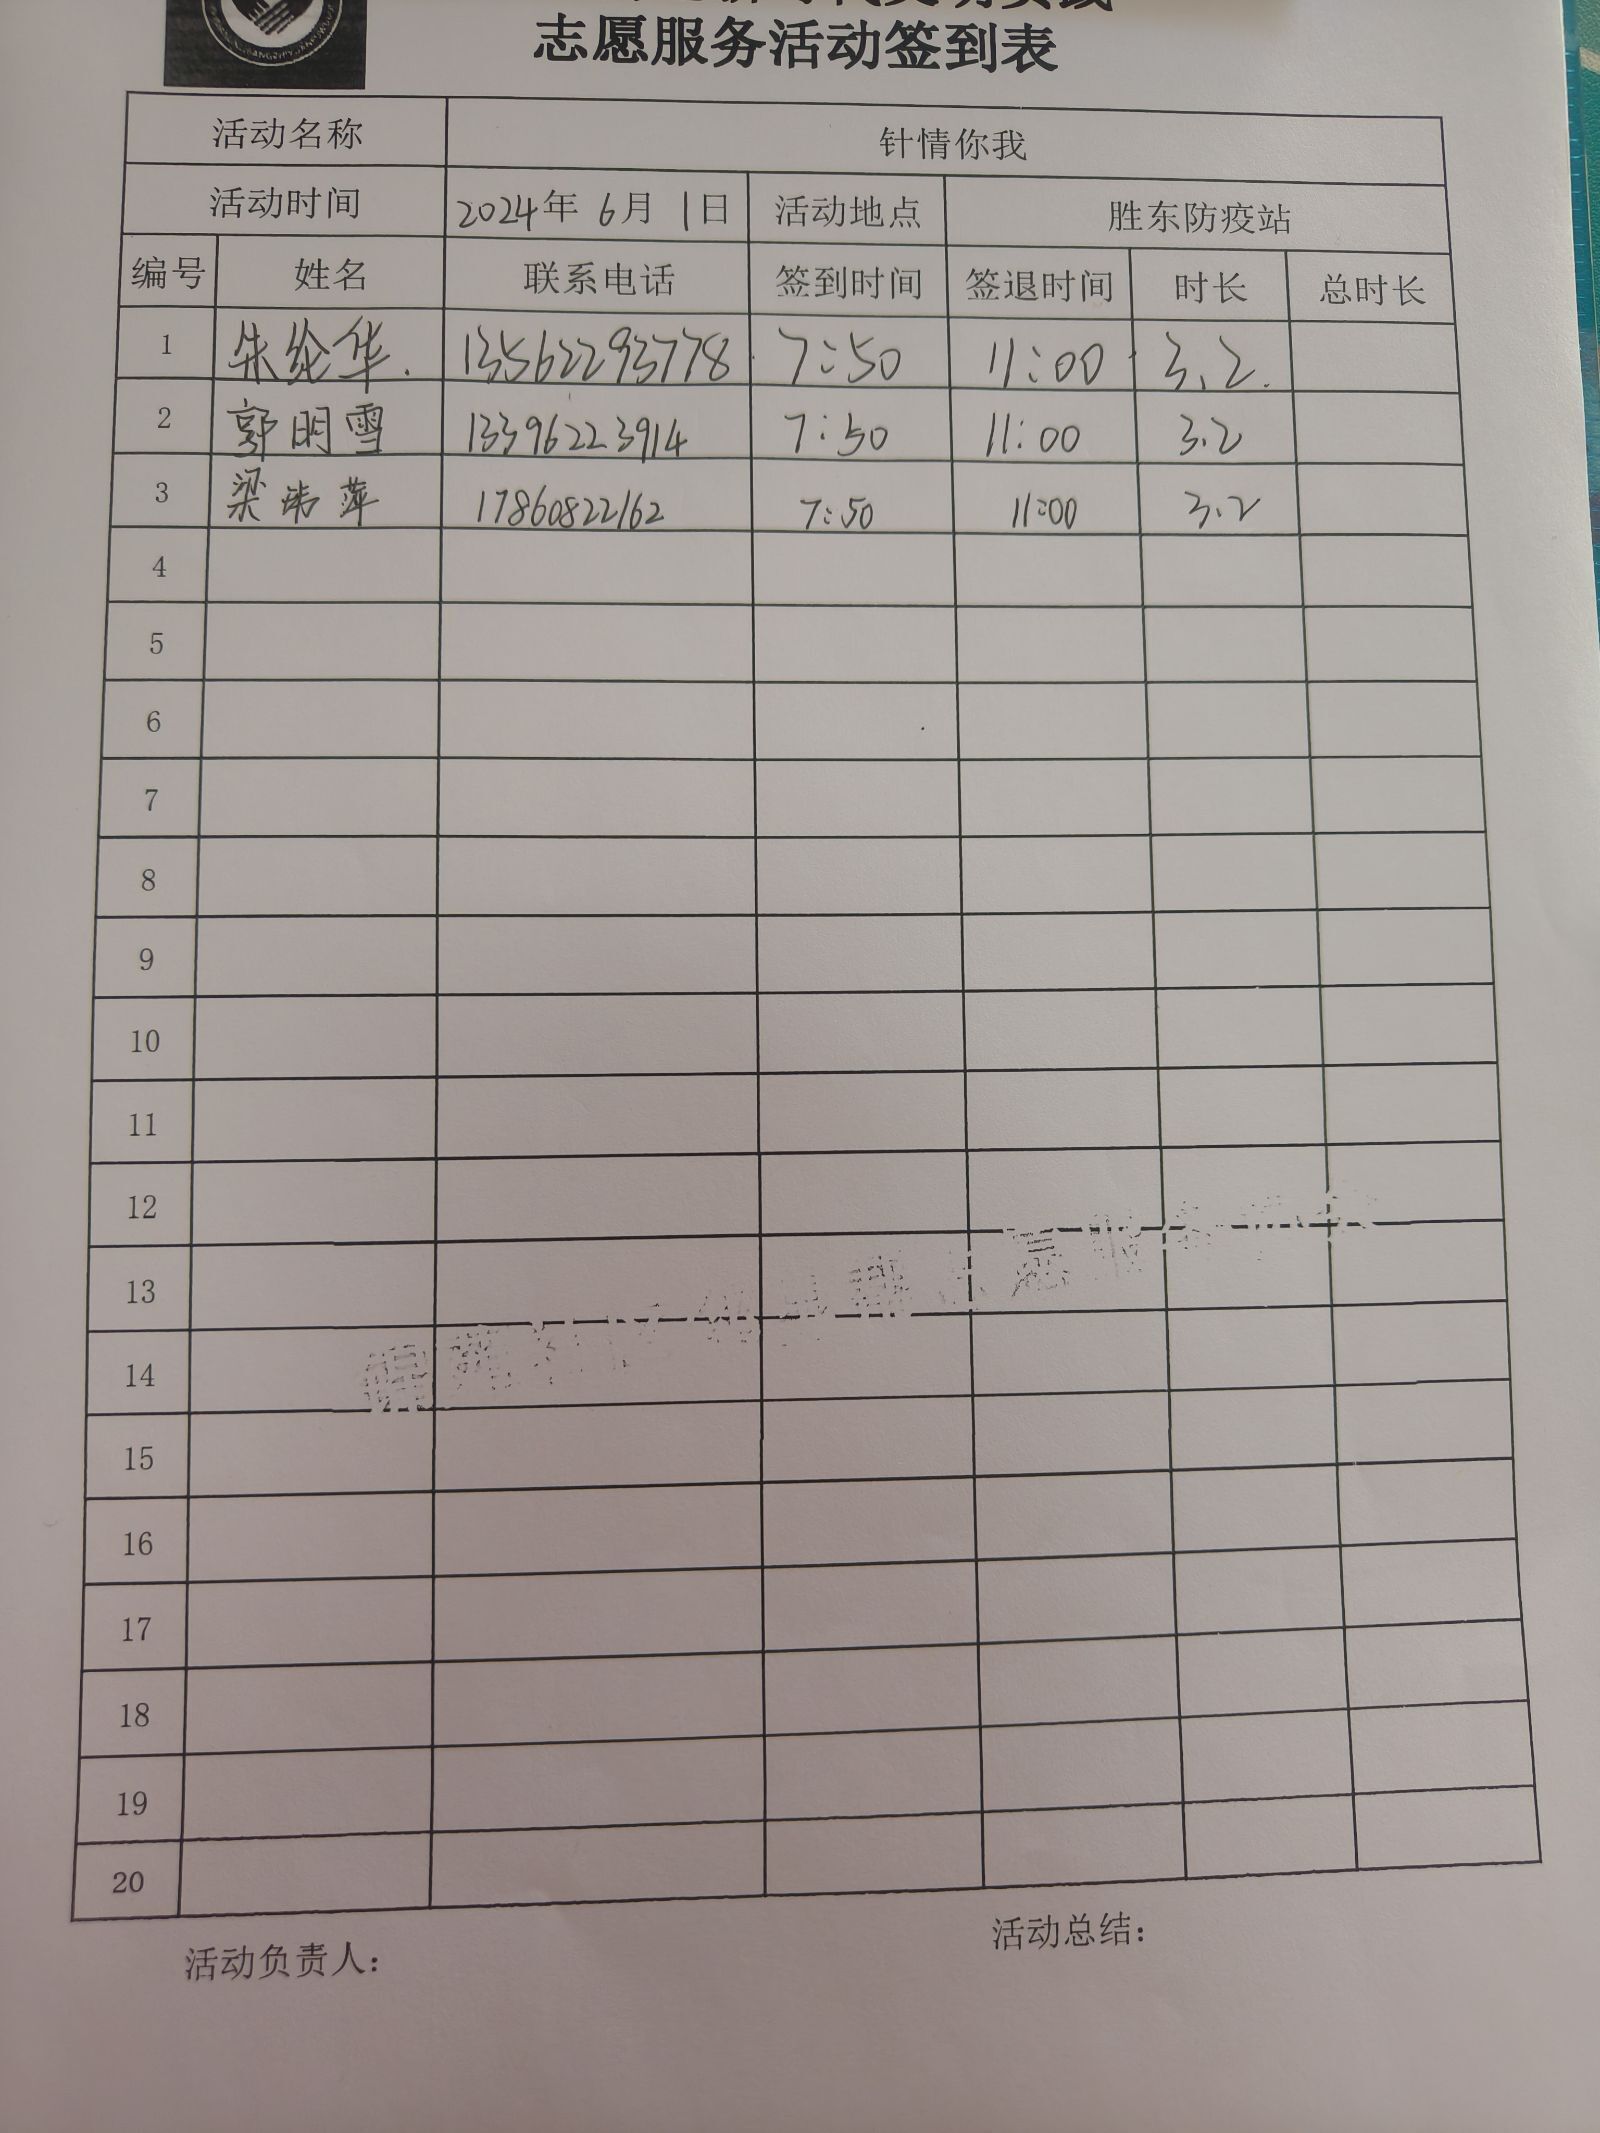 志愿服务活动签到表
活动名称 针情你我
活动时间 2024年 6月 1日 活动地点 胜东防疫站
编号 姓名 联系电话 签到时间 签退时间 时长 总时长
1 朱纶华. 13562293778 7:50 11:00 3.2.
2 郭明雪 13396223914 7:50 11:00 3.2
3 梁 萍 17860822162 7:50 11:00 3.2
4
5
6
7
8
9
10
11
12
13
14
15
16
17
18
19
20
活动负责人: 活动总结: